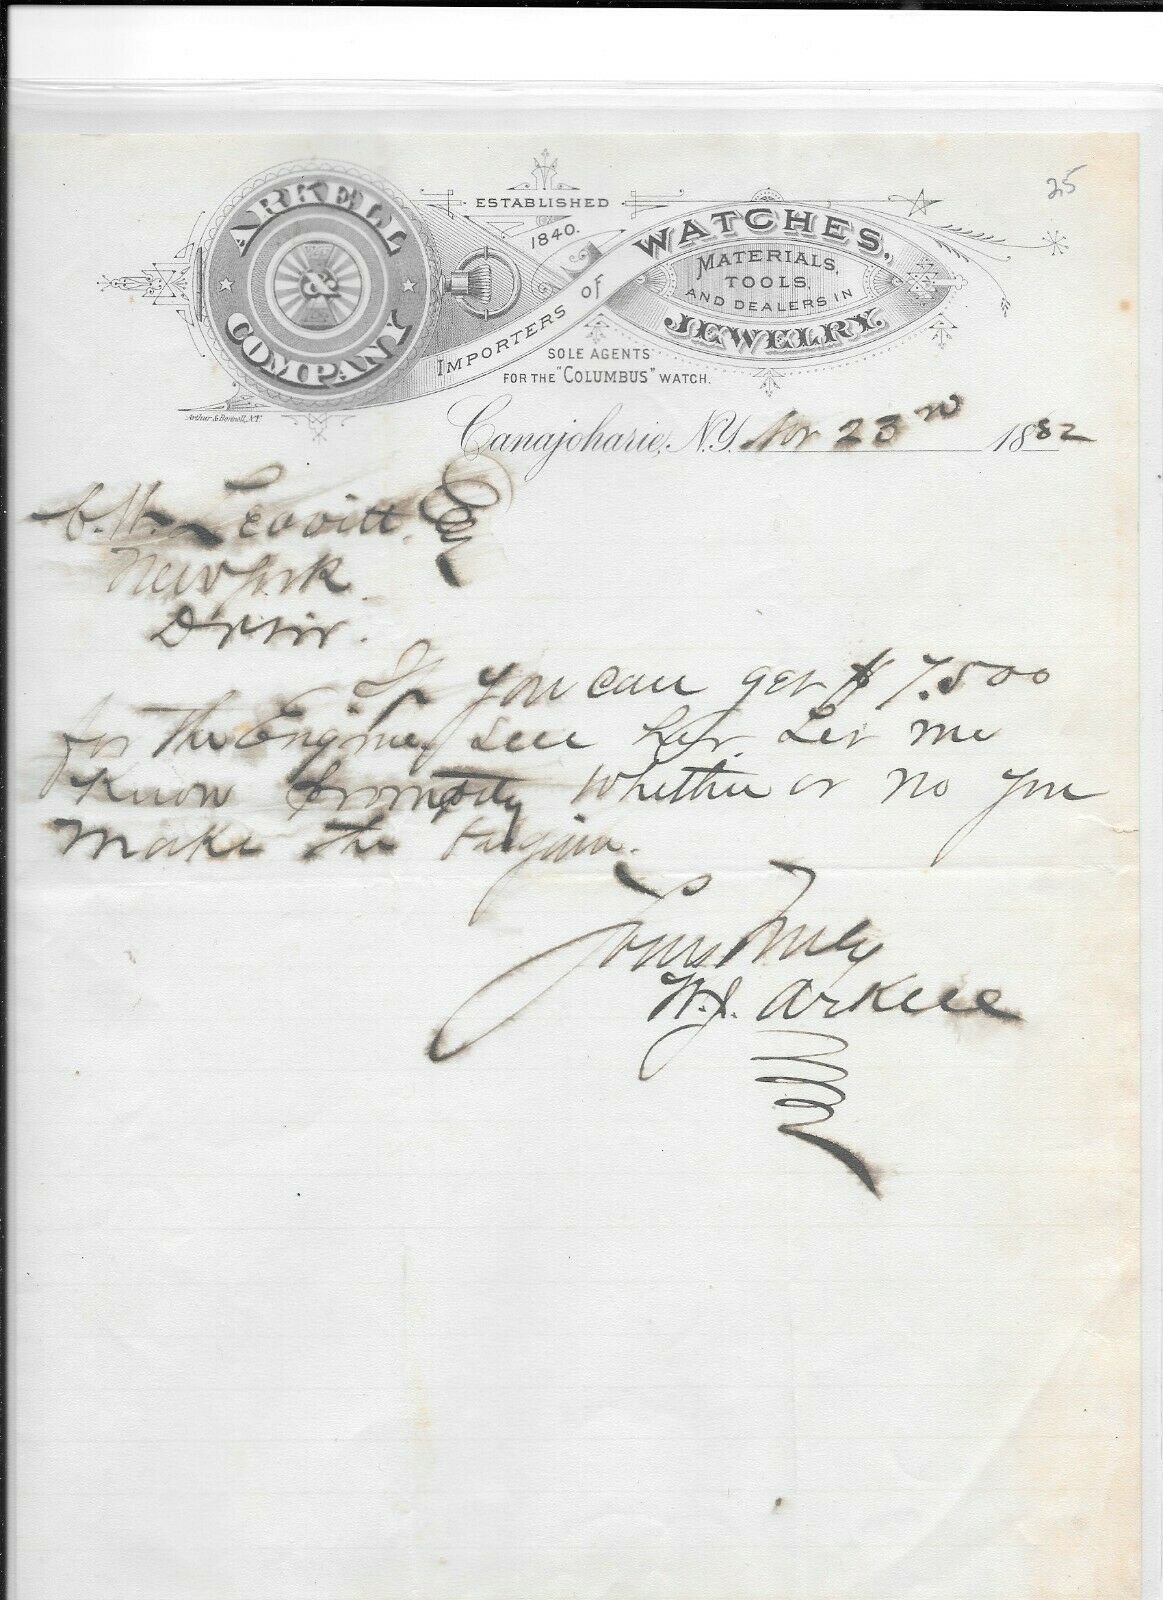 25
ARKELL
COMPANY
ESTABLISHED
1840.
IMPORTERS OF WATCHES,
MATERIALS,
TOOLS,
AND DEALERS IN
JEWELRY.
SOLE AGENTS
FOR THE "COLUMBUS" WATCH.
Arthur & Bonnell, N.Y.
Canajoharie, N.Y. Nov 23rd 1882
C. H. Leavitt, Esq
New York
Dr Sir.
If you can get $7.500
for the Engine, sell her. Let me
Know promptly whether or no you
make the bargain.
Yours Truly
W. J. Arkell